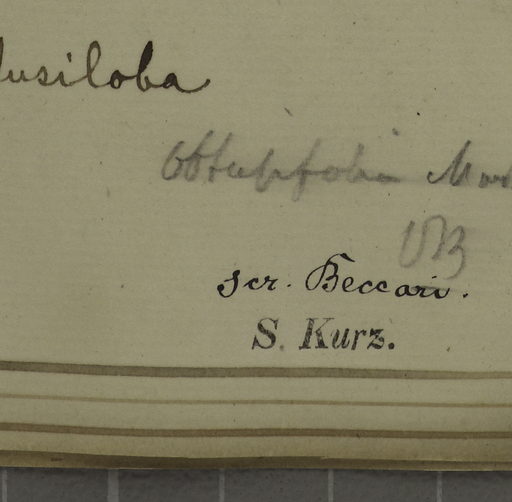 usiloba
obtusifolia Mart
scr. Beccari.
S. Kurz.